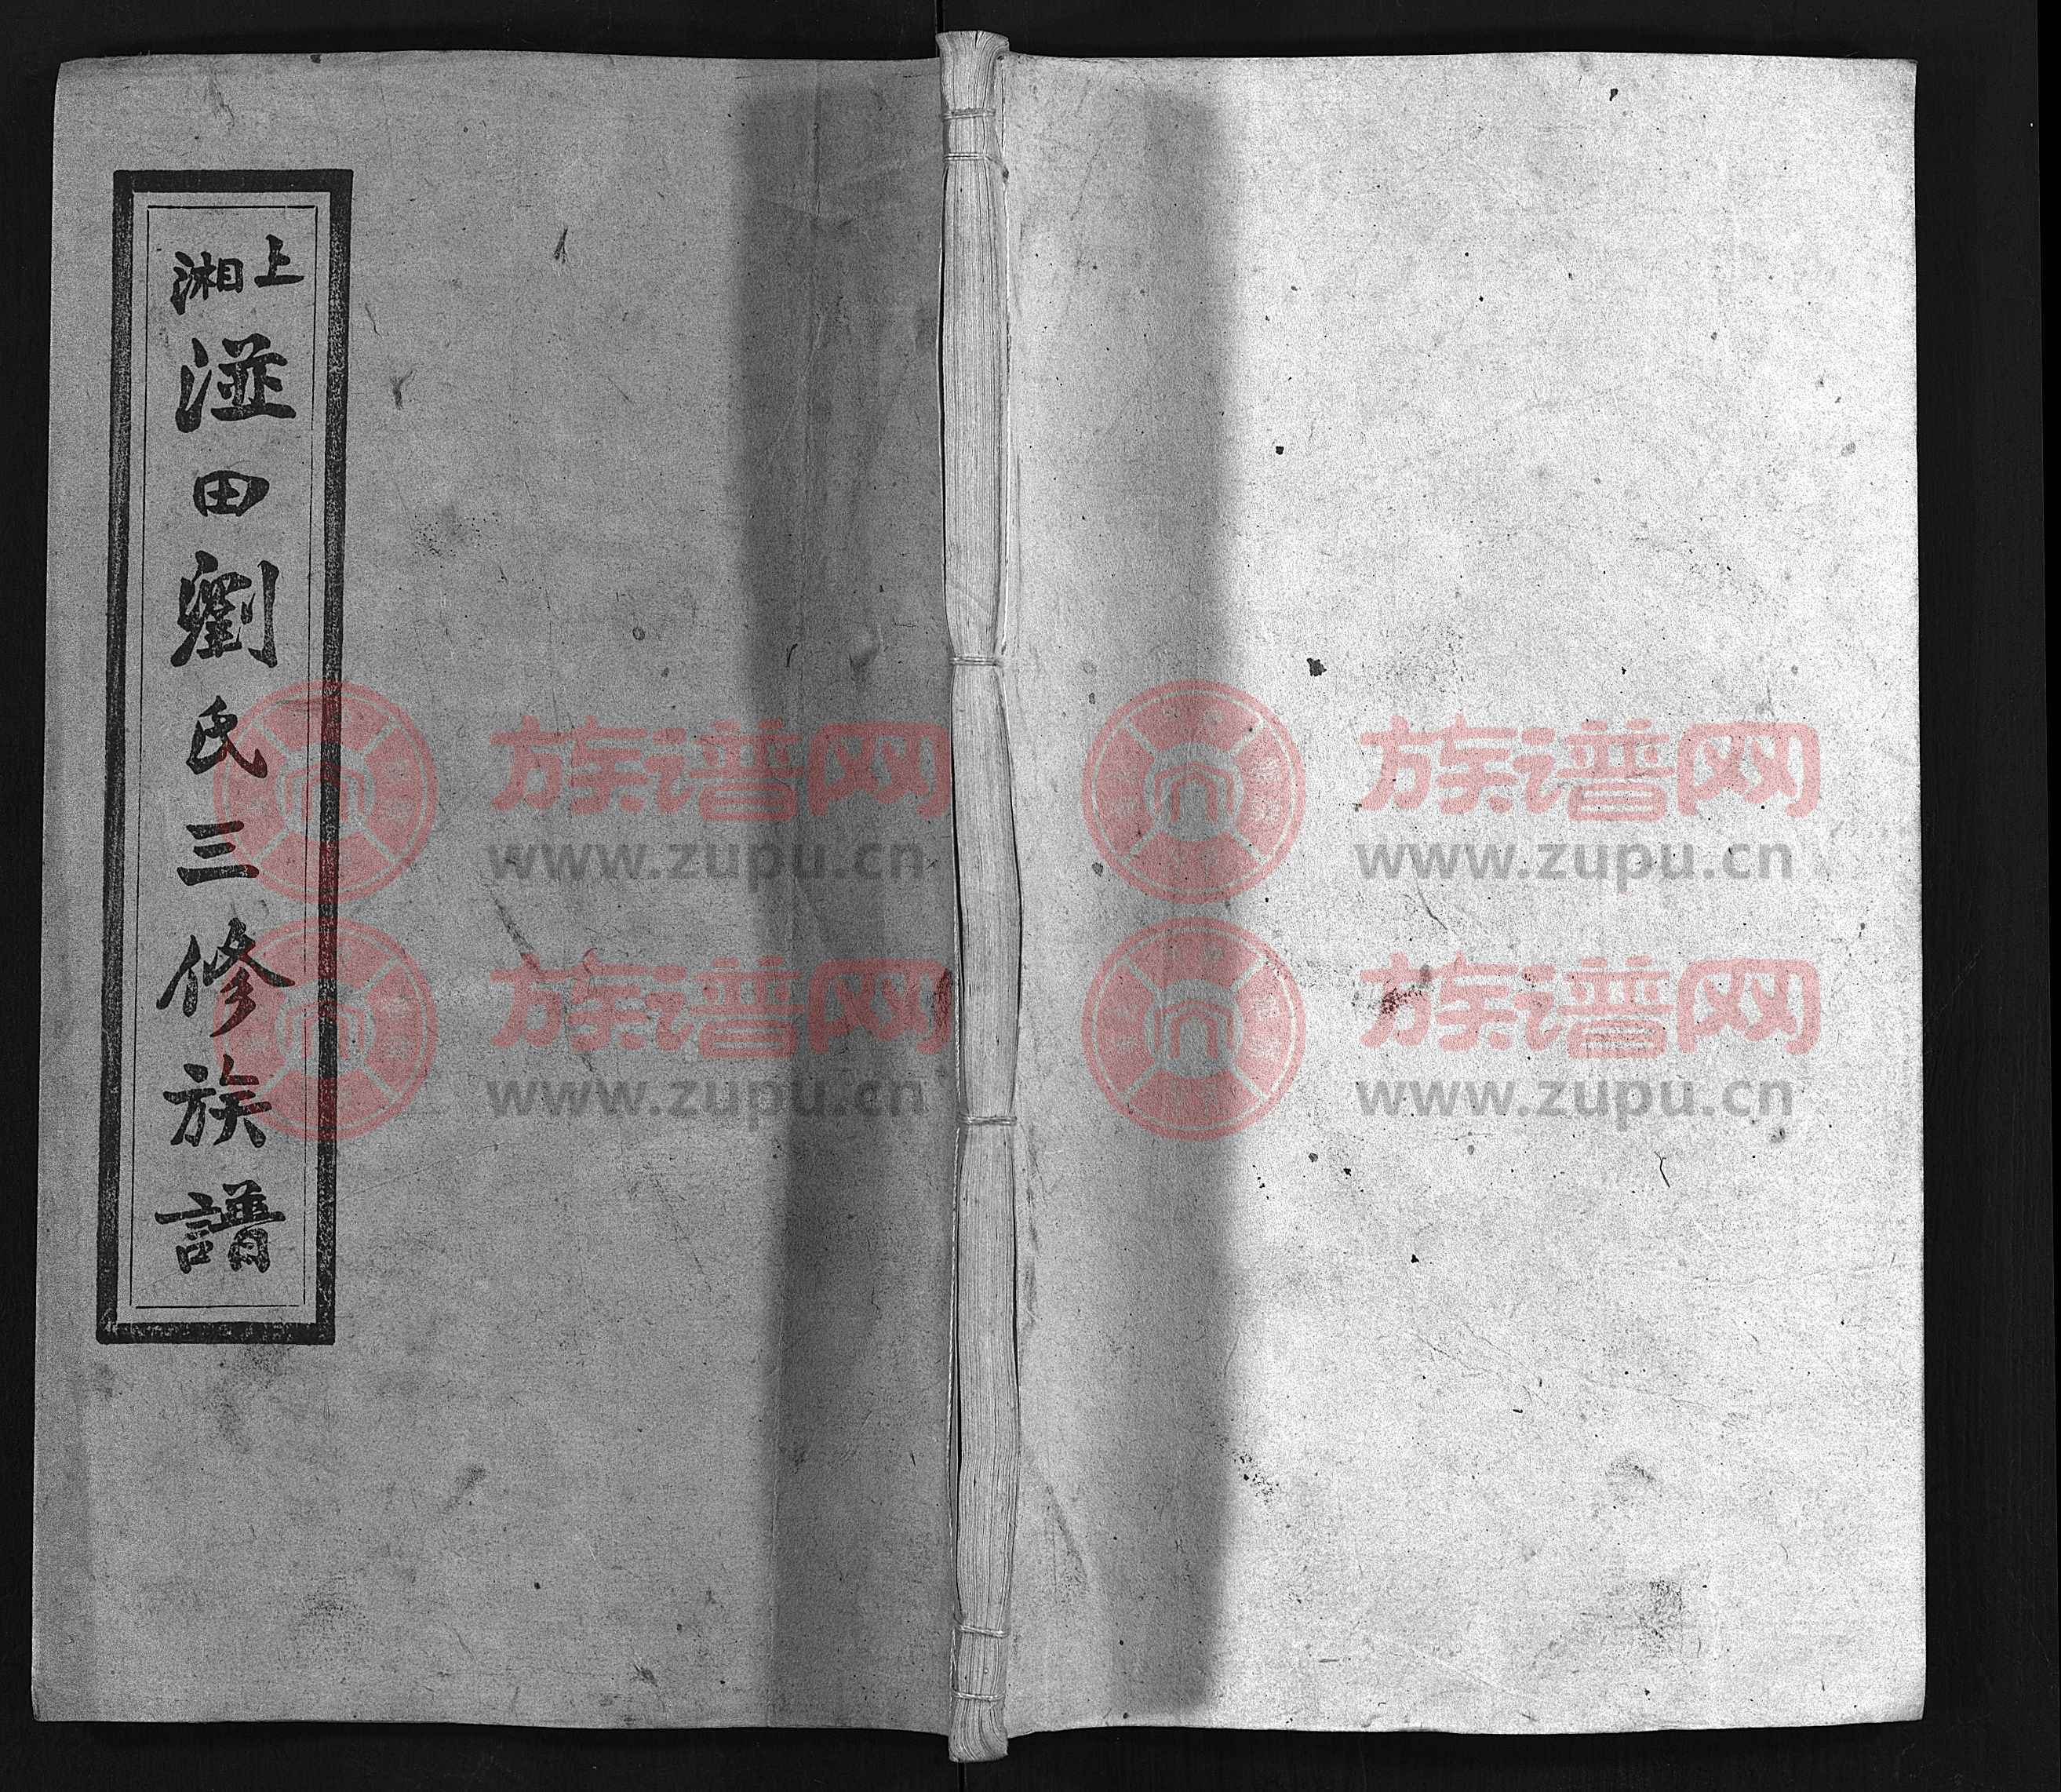 上湘湴田劉氏三修族譜
族谱网
www.zupu.cn
族谱网
www.zupu.cn
族谱网
www.zupu.cn
族谱网
www.zupu.cn